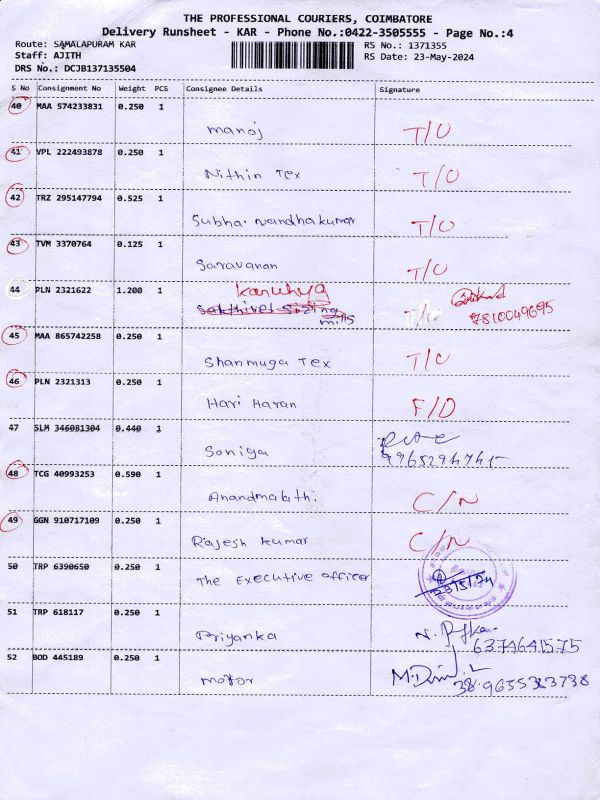 THE PROFESSIONAL COURIERS, COIMBATORE
Delivery Runsheet - KAR - Phone No.:0422-3505555 - Page No.:4
Route: SAMALAPURAM KAR
RS No.: 1371355
Staff: AJITH
RS Date: 23-May-2024
DRS No.: DCJB137135504
S No Consignment No Weight PCS Consignee Details Signature
40 MAA 574233831 0.250 1
manoj T/O
41 VPL 222493878 0.250 1
Nithin Tex T/O
42 TRZ 295147794 0.525 1
Subha. Nandhakumar T/O
43 TVM 3370764 0.125 1
Saravanan T/O
44 PLN 2321622 1.200 1
Sakthivel Sizing mills
7810049695
45 MAA 865742258 0.250 1
Shanmuga Tex T/O
46 PLN 2321313 0.250 1
Hari Haran F/D
47 SLM 346081304 0.440 1
Soniga
48 TCG 40993253 0.590 1
Anandmalathi C/N
49 GGN 910717109 0.250 1
Rajesh kumar C/N
50 TRP 6390650 0.250 1
The Executive officer
51 TRP 618117 0.250 1
Priyanka
6374641575
52 BOD 445189 0.250 1
motor